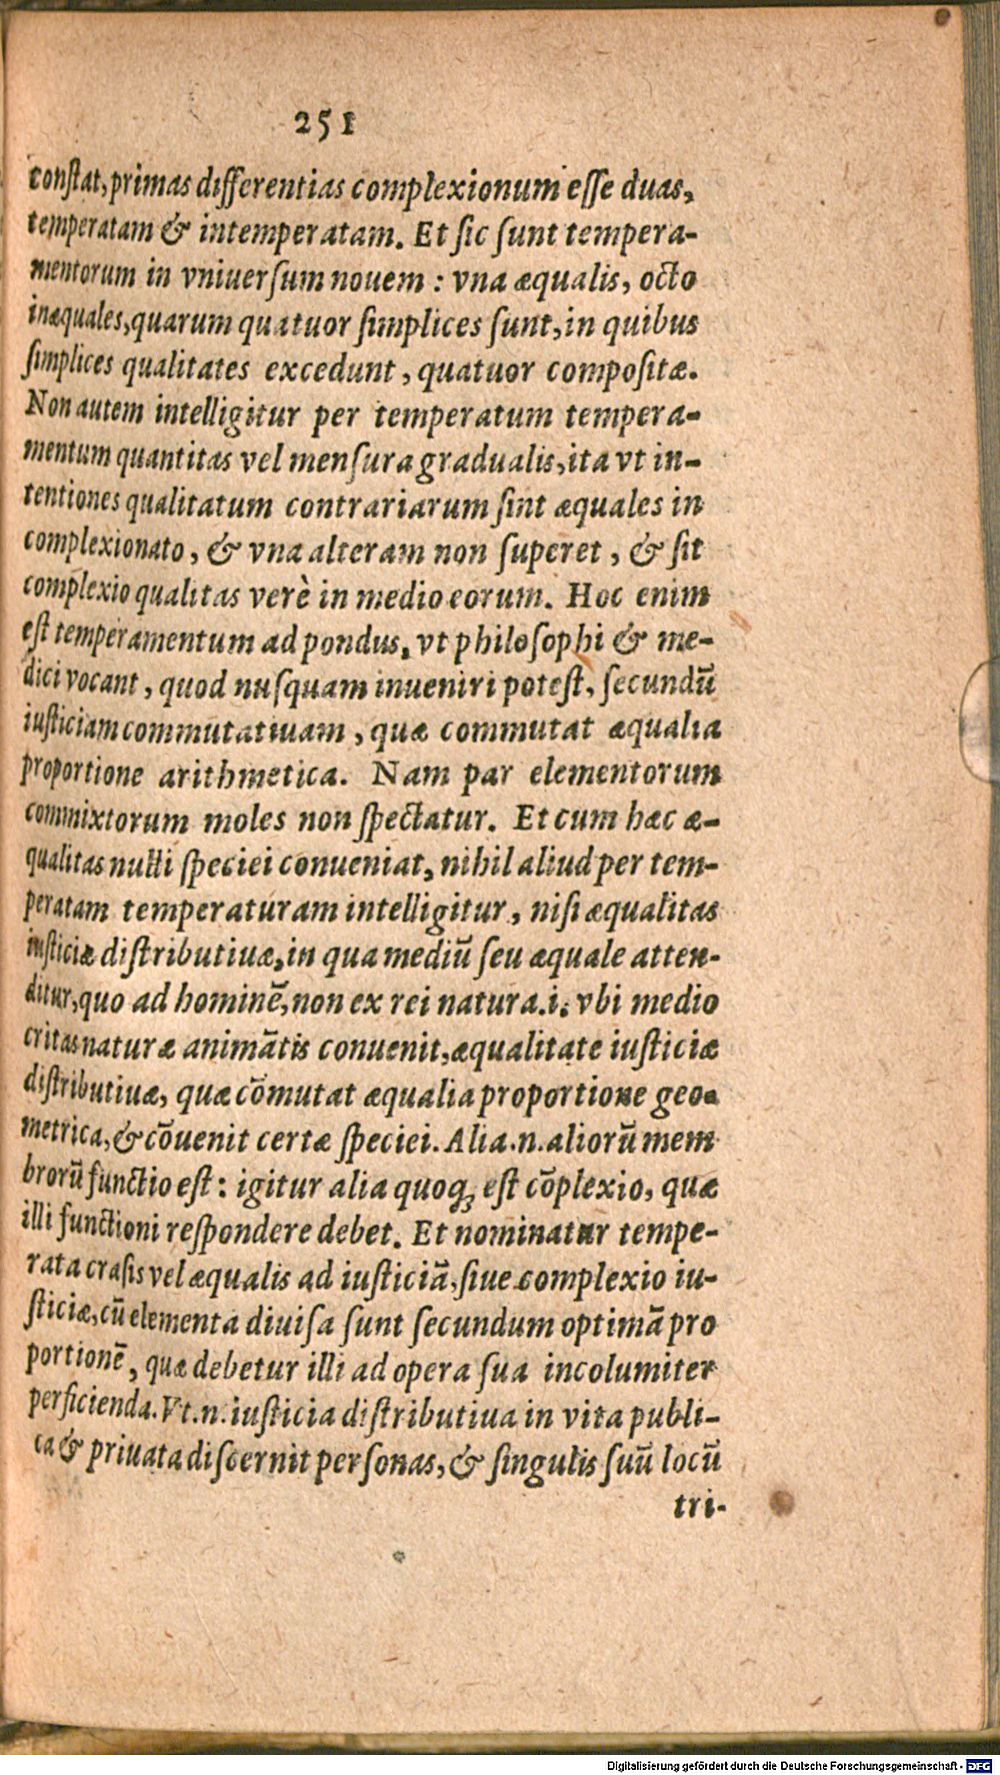 251
constat, primas differentias complexionum esse duas,
temperatam & intemperatam. Et sic sunt tempera-
mentorum in vniuersum nouem : vna æqualis, octo
inæquales, quarum quatuor simplices sunt, in quibus
simplices qualitates excedunt, quatuor compositæ.
Non autem intelligitur per temperatum tempera-
mentum quantitas vel mensura gradualis, ita vt in-
tentiones qualitatum contrariarum sint æquales in
complexionato, & vna alteram non superet, & sit
complexio qualitas verè in medio eorum. Hoc enim
est temperamentum ad pondus, vt philosophi & me-
dici vocant, quod nusquam inueniri potest, secundū
iusticiam commutatiuam, quæ commutat æqualia
proportione arithmetica. Nam par elementorum
commixtorum moles non spectatur. Et cum hæc æ-
qualitas nulli speciei conueniat, nihil aliud per tem-
peratam temperaturam intelligitur, nisi æqualitas
iusticiæ distributiuæ, in qua mediū seu æquale atten-
ditur, quo ad hominē, non ex rei natura.i. vbi medio
critas naturæ animātis conuenit, æqualitate iusticiæ
distributiuæ, quæ cōmutat æqualia proportione geo-
metrica, & cōuenit certæ speciei. Alia.n. aliorū mem
brorū functio est: igitur alia quoq; est cōplexio, quæ
illi functioni respondere debet. Et nominatur tempe-
rata crasis vel æqualis ad iusticiā, siue complexio iu-
sticiæ, cū elementa diuisa sunt secundum optimā pro
portionē, quæ debetur illi ad opera sua incolumiter
perficienda. Vt.n. iusticia distributiua in vita publi-
ca & priuata discernit personas, & singulis suū locū
tri-
Digitalisierung gefördert durch die Deutsche Forschungsgemeinschaft - DFG